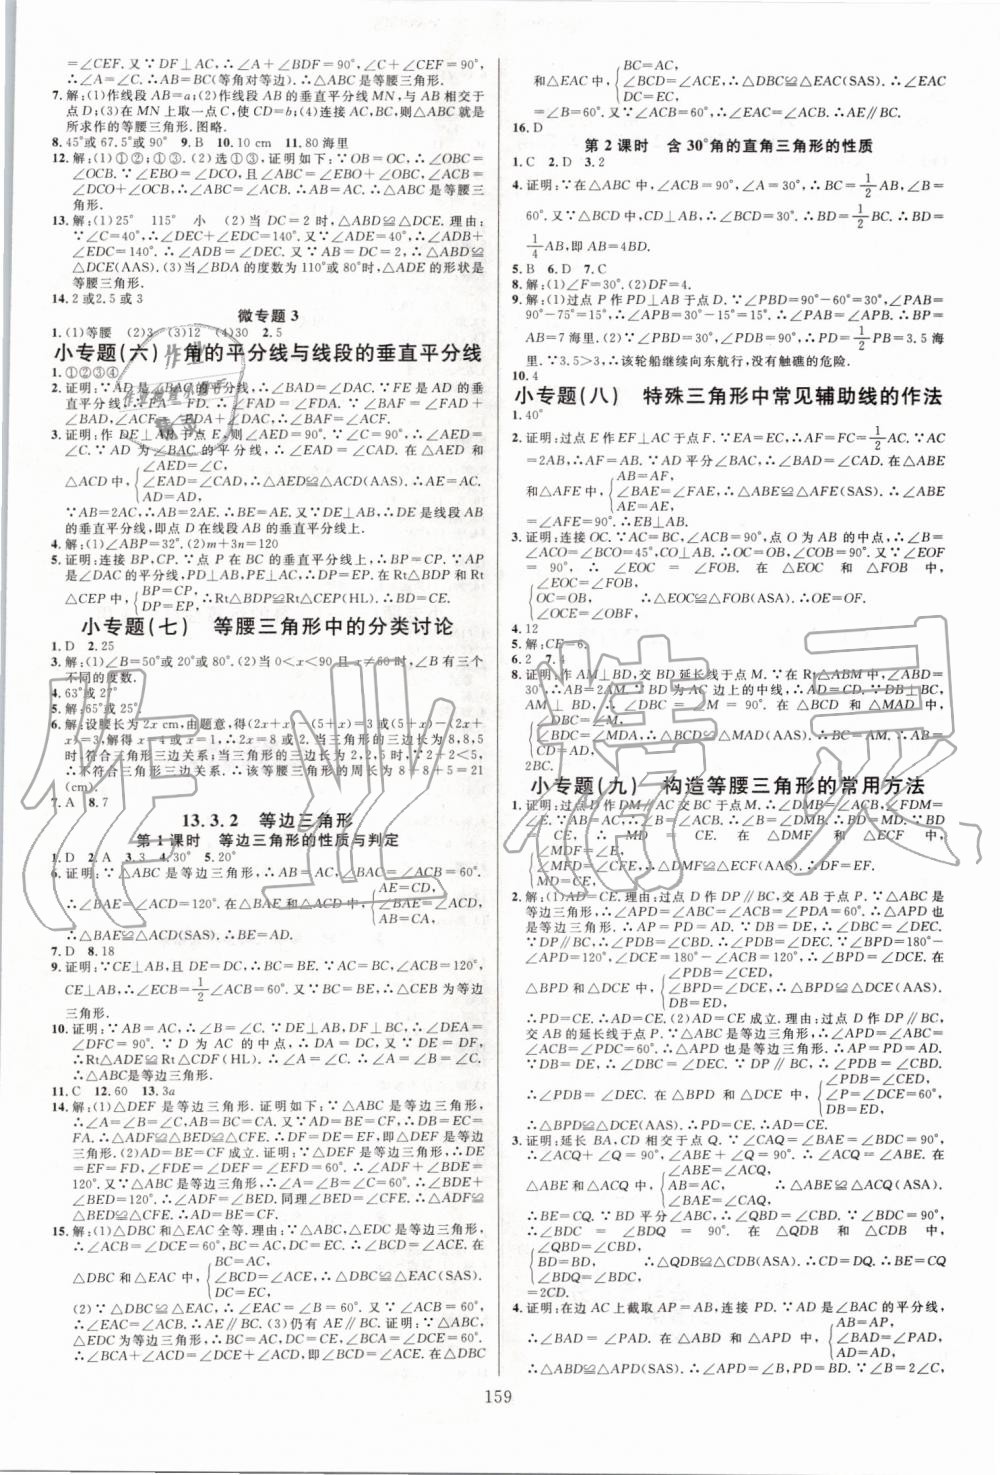 =∠CEF.又∵DF⊥AC,∴∠A+∠BDF=90°,∠C+∠CEF=90°,
∴∠A=∠C.∴AB=BC(等角对等边).∴△ABC是等腰三角形.
7.解:(1)作线段AB=a;(2)作线段AB的垂直平分线MN,与AB相交于
点D;(3)在MN上取一点C,使CD=b;(4)连接AC,BC,则△ABC就是
所求作的等腰三角形.图略.
8.45°或67.5°或90° 9.B 10.10 cm 11.80海里
12.解:(1)①②;①③.(2)选①③,证明如下:∵OB=OC,∴∠OBC=
∠OCB.∵∠EBO=∠DCO,且∠ABC=∠EBO+∠OBC,∠ACB=
∠DCO+∠OCB,∴∠ABC=∠ACB.∴AB=AC.∴△ABC是等腰三角
形.
13.解:(1)25° 115° 小 (2)当DC=2时,△ABD≌△DCE.理由:
∵∠C=40°,∴∠DEC+∠EDC=140°.又∵∠ADE=40°,∴∠ADB+
∠EDC=140°.∴∠ADB=∠DEC.又∵AB=DC=2,∴△ABD≌
△DCE(AAS).(3)当∠BDA的度数为110°或80°时,△ADE的形状是
等腰三角形.
14.2或2.5或3
微专题3
1.(1)等腰 (2)3 (3)12 (4)30 2.5
小专题(六) 角的平分线与线段的垂直平分线
1.①②③④
2.证明:∵AD是∠BAC的平分线,∴∠BAD=∠CAD.∵FE是AD的垂
直平分线,∴FA=FD.∴∠FAD=∠FDA.∵∠BAF=∠BAD+
∠FAD,∠ACF=∠CAD+∠FDA,∴∠BAF=∠ACF.
3.证明:作DE⊥AB于点E,则∠AED=90°.∵∠C=90°,∴∠AED=
∠C.∵AD为∠BAC的平分线,∴∠EAD=∠CAD.在△AED和
△ACD中,
∠AED=∠C,
∠EAD=∠CAD,∴△AED≌△ACD(AAS).∴AE=AC.
AD=AD,
∵AB=2AC,∴AB=2AE.∴BE=AE.又∵DE⊥AB,∴DE是线段AB
的垂直平分线,即点D在线段AB的垂直平分线上.
4.解:(1)∠ABP=32°.(2)m+3n=120
5.证明:连接BP,CP.∵点P在BC的垂直平分线上,∴BP=CP.∵AP
是∠DAC的平分线,PD⊥AB,PE⊥AC,∴DP=EP.在Rt△BDP和Rt
△CEP中,
BP=CP,
DP=EP,
∴Rt△BDP≌Rt△CEP(HL).∴BD=CE.
小专题(七) 等腰三角形中的分类讨论
1.D 2.25
3.解:(1)∠B=50°或20°或80°.(2)当0<x<90且x≠60时,∠B有三个
不同的度数.
4.63°或27°
5.解:65°或25°.
6.解:设腰长为2x cm,由题意,得(2x+x)-(5+x)=3或(5+x)-(2x
+x)=3,解得x=4或x=1,∴2x=8或2.当三角形的三边长为8,8,5
时,符合三角形三边关系;当三角形的三边长为2,2,5时,∵2+2<5,
∴不符合三角形三边关系.∴该等腰三角形的周长为8+8+5=21
(cm).
7.A 8.7
13.3.2 等边三角形
第1课时 等边三角形的性质与判定
1.D 2.A 3.3 4.30° 5.20°
6.证明:∵△ABC是等边三角形,∴AB=AC,∠BAC=∠ACB=60°.
∴∠BAE=∠ACD=120°.在△BAE和△ACD中,
AE=CD,
∠BAE=∠ACD,
AB=CA,
∴△BAE≌△ACD(SAS).∴BE=AD.
7.D 8.18
9.证明:∵CE⊥AB,且DE=DC,∴BC=BE.∵AC=BC,∠ACB=120°,
CE⊥AB,∴∠ECB=1/2∠ACB=60°.又∵BC=BE,∴△CEB为等边
三角形.
10.证明:∵AB=AC,∴∠B=∠C.∵DE⊥AB,DF⊥BC,∴∠DEA=
∠DFC=90°.∵D为AC的中点,∴DA=DC.又∵DE=DF,
∴Rt△ADE≌Rt△CDF(HL).∴∠A=∠C.∴∠A=∠B=∠C.
∴△ABC是等边三角形.
11.C 12.60 13.3a
14.解:(1)△DEF是等边三角形.证明如下:∵△ABC是等边三角形,
∴∠A=∠B=∠C,AB=BC=CA.又∵AD=BE=CF,∴DB=EC=
FA.∴△ADF≌△BED≌△CFE.∴DF=DE=EF,即△DEF是等边
三角形.(2)AD=BE=CF成立.证明:∵△DEF是等边三角形,∴DE
=EF=FD,∠FDE=∠DEF=∠EFD=60°.∴∠ADF+∠BDE=
120°.又∵△ABC是等边三角形,∴∠A=∠B=∠C=60°.∴∠BED
+∠BDE=120°.∴∠ADF=∠BED.同理∠BED=∠CFE.∴△ADF≌
△BED≌△CFE.∴AD=BE=CF.
15.解:(1)△DBC和△EAC全等.理由:∵△ABC,△EDC是等边三角形,
∴∠ACB=∠DCE=60°,BC=AC,DC=EC.∴∠BCD=∠ACE.在
△DBC和△EAC中,
BC=AC,
∠BCD=∠ACE,∴△DBC≌△EAC(SAS).
DC=EC,
(2)∵△DBC≌△EAC,∴∠EAC=∠B=60°.又∵∠ACB=60°,
∴∠EAC=∠ACB.∴AE∥BC.(3)仍有AE∥BC.证明:∵△ABC,
△EDC为等边三角形,∴BC=AC,DC=CE,∠BCA=∠DCE=60°.
∴∠BCA+∠ACD=∠DCE+∠ACD,即∠BCD=∠ACE.在△DBC
和△EAC中,
BC=AC,
∠BCD=∠ACE,∴△DBC≌△EAC(SAS).∴∠EAC
DC=EC,
=∠B=60°.又∵∠ACB=60°,∴∠EAC=∠ACB.∴AE∥BC.
16.D
第2课时 含30°角的直角三角形的性质
1.C 2.D 3.2
4.证明:∵在△ABC中,∠ACB=90°,∠A=30°,∴BC=1/2AB,∠B=
60°.又∵△BCD中,CD⊥AB,∴∠BCD=30°.∴BD=1/2BC.∴BD=
1/4AB,即AB=4BD.
5.B 6.D 7.C
8.解:(1)∠F=30°.(2)DF=4.
9.解:(1)过点P作PD⊥AB于点D.∵∠PBD=90°-60°=30°,∠PAB
=90°-75°=15°,∴∠PAB=∠APB.∴BP=AB=7海里.(2)∵PD=
3.5海里.∵3.5>3,∴该轮船继续向东航行,没有触礁的危险.
10.4
小专题(八) 特殊三角形中常见辅助线的作法
1.40°
2.证明:过点E作EF⊥AC于点F.∵EA=EC,∴AF=FC=1/2AC.∵AC
=2AB,∴AF=AB.∵AD平分∠BAC,∴∠BAD=∠CAD.在△ABE
和△AFE中,
AB=AF,
∠BAE=∠FAE,∴△ABE≌△AFE(SAS).∴∠ABE
AE=AE,
=∠AFE=90°.∴EB⊥AB.
3.证明:连接OC.∵AC=BC,∠ACB=90°,点O为AB的中点,∴∠B=
∠ACO=∠BCO=45°,CO⊥AB.∴OC=OB,∠COB=90°.又∵∠EOF
=90°,∴∠EOC=∠FOB.在△EOC和△FOB中,
∠EOC=∠FOB,
OC=OB,
∠OCE=∠OBF,
∴△EOC≌△FOB(ASA).∴OE=OF.
4.12
5.解:CE=6.
6.2 7.4
8.证明:作AM⊥BD,交BD延长线于点M.∵在Rt△ABM中,∠ABD=
30°,∴AB=2AM.∵BD为AC边上的中线,∴AD=CD.∵DB⊥BC,
AM⊥BD,∴∠DBC=∠M=90°.在△BCD和△MAD中,
∠DBC=∠M,
∠BDC=∠MDA,∴△BCD≌△MAD(AAS).∴BC=AM.∴AB=
2BC.
小专题(九) 构造等腰三角形的常用方法
1.证明:过点D作DM∥AC交BC于M,∴∠DMB=∠ACB,∠FDM=
∠E.∵AB=AC,∴∠B=∠ACB.∴∠B=∠DMB.∴BD=MD.∵BD
=CE,∴MD=CE.在△DMF和△ECF中,
∠MDF=∠E,
∠MFD=∠CFE,∴△DMF≌△ECF(AAS).∴DF=EF.
MD=CE,
2.解:(1)AD=CE.理由:过点D作DP∥BC,交AB于点P.∵△ABC是
等边三角形,∴∠APD=∠ABC=∠APDA=60°,∴△APD是等边三角
形.∴AP=PD=AD.∵DB=DE,∴∠DBC=∠DEC.
∵DP∥BC,∴∠PDB=∠DBC.∴∠PDB=∠DEC.∵∠BPD=180°-
∠APD=120°,∠DCE=180°-∠ACB=120°,∴∠BPD=∠DCE.在
△BPD和△DCE中,
∠PDB=∠CED,
∠BPD=∠DCE,∴△BPD≌△DCE(AAS).
DB=DE,
∴PD=CE.∴AD=CE.(2)AD=CE成立.理由:过点D作DP∥BC,
交AB的延长线于点P.∵△ABC是等边三角形,∴∠APD=∠ABC=
∠ACB=∠ADP=60°.∴△APD是等边三角形.∴AP=PD=AD.
∵DB=DE,∴∠DBC=∠DEC.∵DP∥BC,∴∠PDB=∠CBD.
∴∠PDB=∠DEC.在△BPD和△DCE中,
∠PDB=∠CED,
∠P=∠DCE=60°,
DB=ED,
∴△BPD≌△DCE(AAS).∴PD=CE.∴AD=CE.
3.证明:延长BA,CD相交于点Q.∵∠CAQ=∠BAE=∠BDC=90°,
∴∠ACQ+∠Q=90°,∠ABE+∠Q=90°.∴∠ACQ=∠ABE.在
△ABE和△ACQ中,
∠ABE=∠ACQ,
AB=AC,
∠BAE=∠CAQ,
∴△ABE≌△ACQ(ASA).
∴BE=CQ.∵BD平分∠ABC,∴∠QBD=∠CBD.∵∠BDC=90°,
∴∠BDC=∠BDQ=90°.在△QDB和△CDB中,
∠QBD=∠CBD,
BD=BD,
∠BDQ=∠BDC,
∴△QDB≌△CDB(ASA).∴CD=DQ.∴BE=CQ
=2CD.
4.证明:在边AC上截取AP=AB,连接PD.∵AD是∠BAC的平分线,
∴∠BAD=∠PAD.在△ABD和△APD中,
AB=AP,
∠BAD=∠PAD,
AD=AD,
∴△ABD≌△APD(SAS).∴∠APD=∠B,PD=BD.∵∠B=2∠C,
159